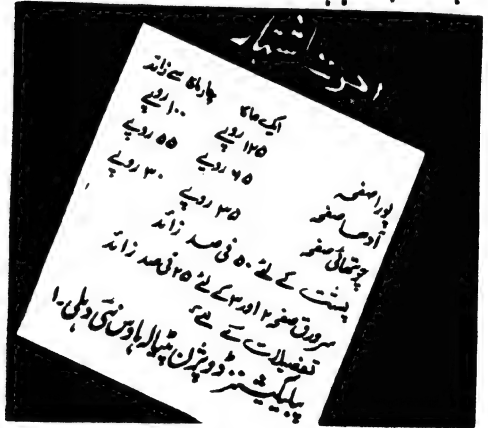 اجرت اشتہار
ایک ماہ چار ماہ سے زائد
پورا صفحہ ۱۲۵ روپے ۱۰۰ روپے
آدھا صفحہ ۶۵ روپے ۵۵ روپے
چوتھائی صفحہ ۳۵ روپے ۳۰ روپے
پشت کے لئے ۵۰ فی صد زائد
سرورق صفحہ ۲ اور ۳ کے لئے ۲۵ فی صد زائد
تفصیلات کے لئے
پبلیکیشنز ڈویژن پٹیالہ ہاؤس نئی دہلی۔۱